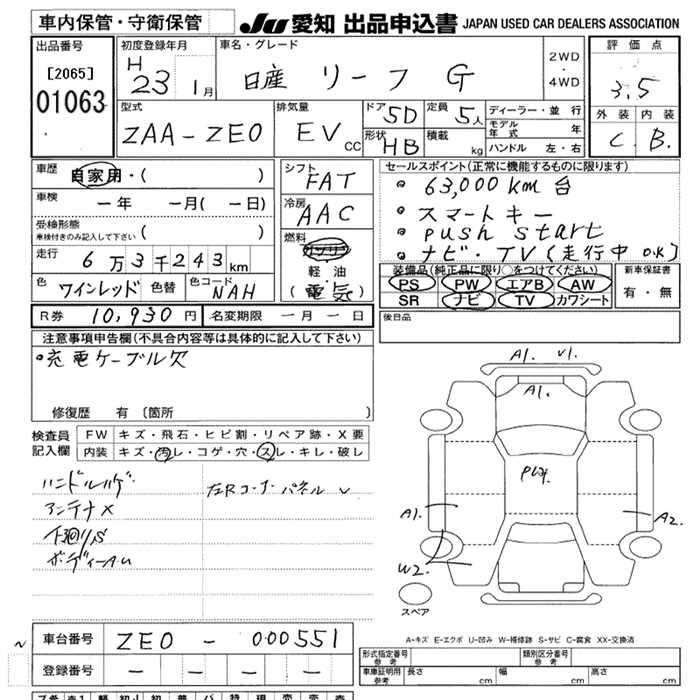 車内保管・守衛保管 JU愛知 出品申込書 JAPAN USED CAR DEALERS ASSOCIATION
出品番号
[2065]
01063
初度登録年月
H 23 1月
車名・グレード
日産 リーフ G
2WD・4WD
評価点
3.5
外装 内装
C. B.
型式
ZAA-ZE0
排気量
EV cc
ドア 5D
定員 5人
形状 HB
積載 kg
ディーラー・並行
モデル年式 年
ハンドル 左・右
車歴 自家用・( )
車検 ー年 ー月(ー日)
受検形態
車検付きのみ記入して下さい ( )
走行 6万3千243km
色 ワインレッド 色替 色コード NAH
シフト FAT
冷房 AAC
燃料
ガソリン
軽油
(電気)
セールスポイント(正常に機能するものに限ります)
・63,000km台
・スマートキー
・push start
・ナビ・TV(走行中OK)
装備品(純正品に限り○をつけてください)
PS PW エアB AW
SR ナビ TV カワシート
新車保証書
有・無
R券 10,930円 名変期限 ー月ー日
後日品
注意事項申告欄(不具合内容等は具体的に記入して下さい)
・充電ケーブル欠
修復歴 有〔箇所 〕
検査員記入欄
FW キズ・飛石・ヒビ割・リペア跡・X要
内装 キズ・汚レ・コゲ・穴・スレ・キレ・破レ
ハンドルハゲ
アンテナX
下廻りS
ボディーAU
左Rコーナーパネル
A1. V1.
A1.
PWt.
A1.
A2.
W2.
スペア
A-キズ E-エクボ U-凹み W-補修跡 S-サビ C-腐食 XX-交換済
車台番号 ZE0-000551
登録番号 ー ー ー ー
型式指定番号 参考
類別区分番号 参考
車庫証明用 参考 長さ cm 幅 cm 高さ cm